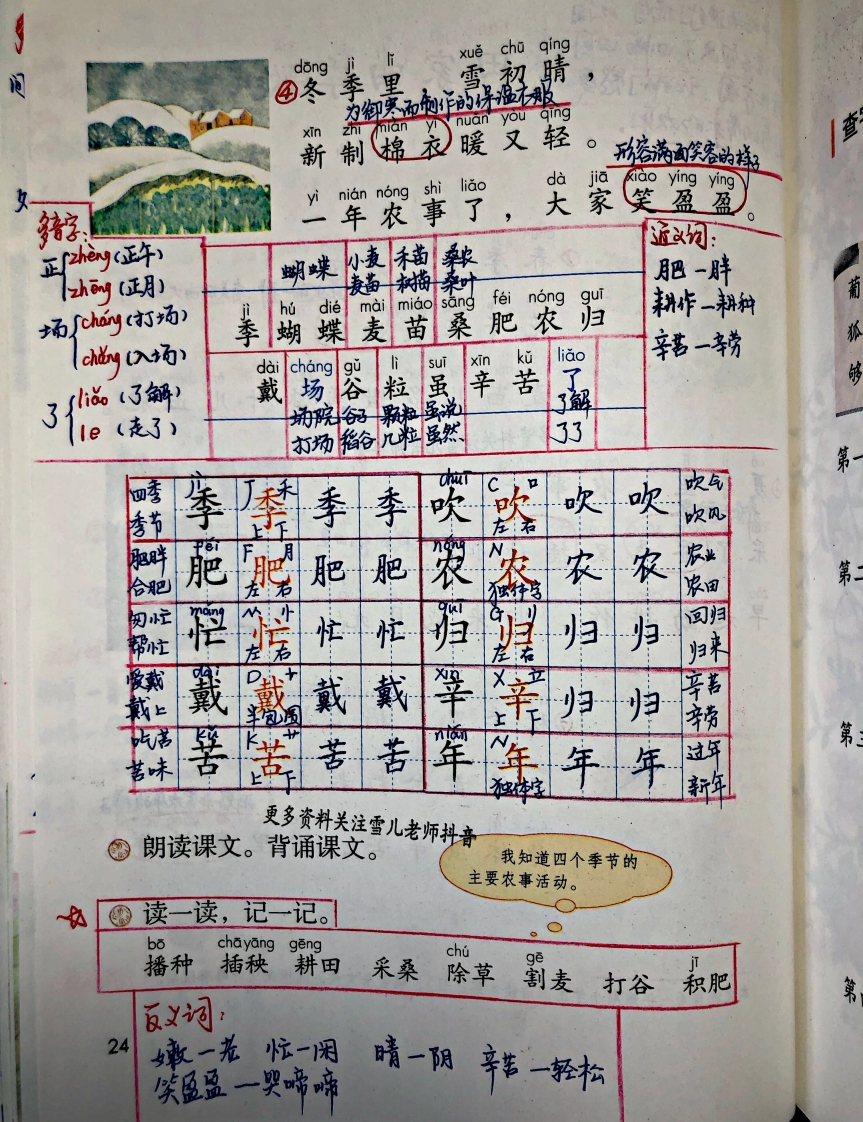 dōng jì lǐ xuě chū qíng
④冬季里 雪初晴，
为御寒而制作的保温衣服
xīn zhì mián yī nuǎn yòu qīng
新制棉衣暖又轻。
形容满面笑容的样子
yì nián nóng shì liǎo dà jiā xiào yíng yíng
一年农事了，大家笑盈盈。
多音字：
正 zhèng（正午）
zhēng（正月）
场 cháng（打场）
chǎng（入场）
了 liǎo（了解）
le（走了）
蝴蝶 小麦 禾苗 桑农
麦苗 树苗 桑叶
jì hú dié mài miáo sāng féi nóng guī
季蝴蝶麦苗桑肥农归
dài cháng gǔ lì suī xīn kǔ liǎo
戴场谷粒虽辛苦了
场院 谷子 颗粒 虽说 了解
打场 稻谷 几粒 虽然 了了
近义词：
肥—胖
耕作—耕种
辛苦—辛劳
四季 jì J 禾 chuī C 口 吹气
季节 季 季 季 季 吹 吹 吹 吹 吹风
上下 左右
肥胖 féi F 月 nóng N 农业
合肥 肥 肥 肥 肥 农 农 农 农 农田
左右 独体字
匆忙 máng M 忄 guī G 刂 回归
帮忙 忙 忙 忙 忙 归 归 归 归 归来
左右 左右
爱戴 dài D 十 xīn X 立 辛苦
戴上 戴 戴 戴 戴 辛 辛 归 归 辛劳
半包围 上下
吃苦 kǔ K 艹 nián N 过年
苦味 苦 苦 苦 苦 年 年 年 年 新年
上下 独体字
更多资料关注雪儿老师抖音
朗读课文。背诵课文。
我知道四个季节的
主要农事活动。
读一读，记一记。
bō chā yāng gēng chú gē jī
播种 插秧 耕田 采桑 除草 割麦 打谷 积肥
反义词：
嫩—老 忙—闲 晴—阴 辛苦—轻松
笑盈盈—哭啼啼
24
查字
葡
狐
够
第一
第二
第三
第